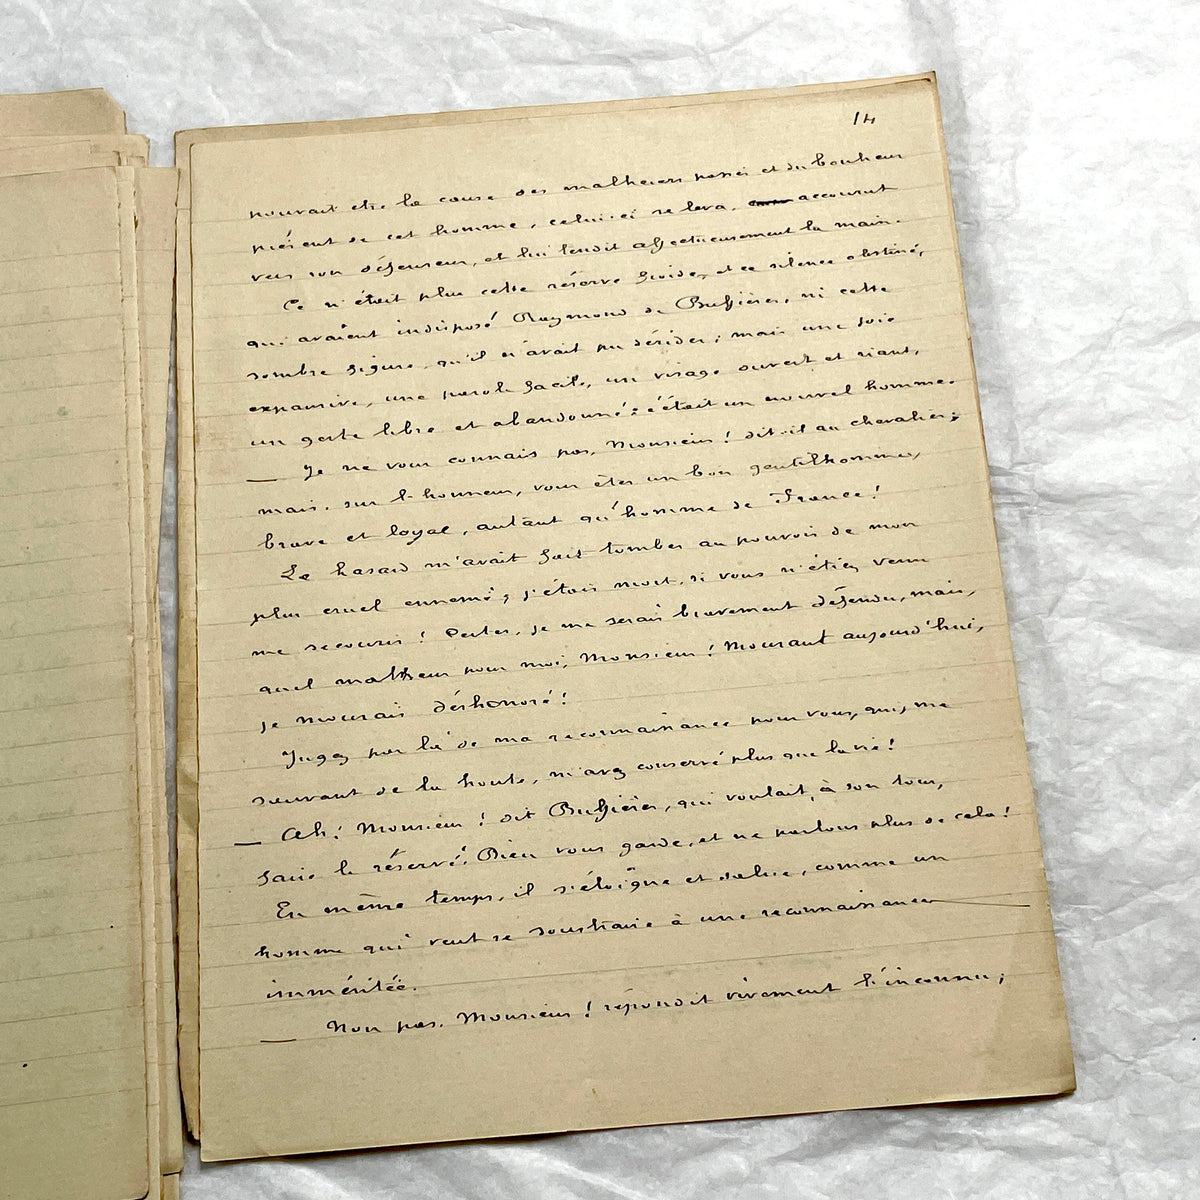 14
pourrait être la cause des malheurs passés et du bonheur
présent de cet homme, celui-ci se leva, accourut
vers son défenseur, et lui tendit affectueusement la main.
Ce n'était plus cette réserve froide, et ce silence obstiné,
qui avaient indisposé Raymond de Buffières, ni cette
sombre figure, qu'il n'avait pu dérider; mais une joie
expansive, une parole facile, un visage ouvert et riant,
un geste libre et abandonné: c'était un nouvel homme.
— Je ne vous connais pas, Monsieur! dit-il au chevalier;
mais, sur l'honneur, vous êtes un bon gentilhomme,
brave et loyal, autant qu'homme de France!
Le hasard m'avait fait tomber au pouvoir de mon
plus cruel ennemi; j'étais mort, si vous n'étiez venu
me secourir! Certes, je me serais bravement défendu, mais,
quel malheur pour moi, Monsieur! Mourant aujourd'hui,
je mourais déshonoré!
Jugez par là de ma reconnaissance pour vous, qui, me
sauvant de la honte, m'avez conservé plus que la vie!
— Ah! Monsieur! dit Buffières, qui voulait, à son tour,
faire le réservé: Dieu vous garde, et ne parlons plus de cela!
En même temps, il s'éloigne et salue, comme un
homme qui veut se soustraire à une reconnaissance
imméritée.
— Non pas, Monsieur! répondit vivement l'inconnu;